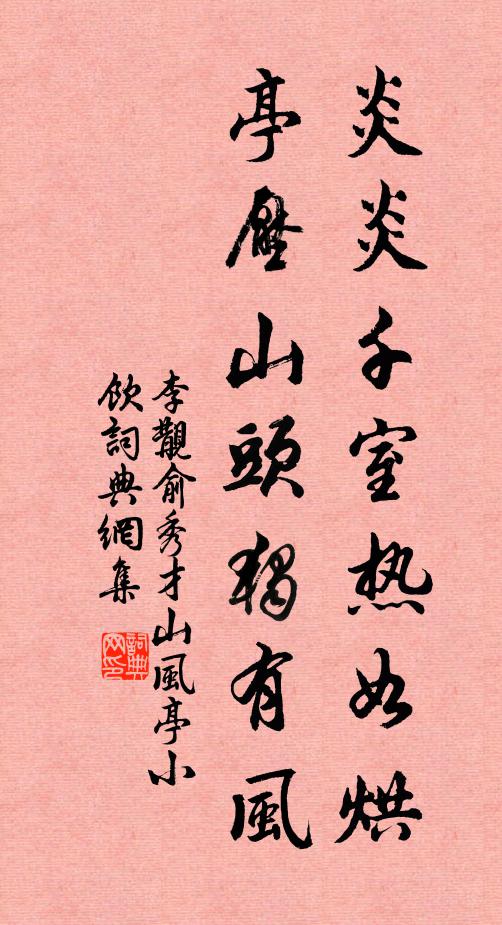 炎炎千室热如烘
亭壓山頭獨有風
李覯俞秀才山風亭小
飲詞典網集
詞典
网印